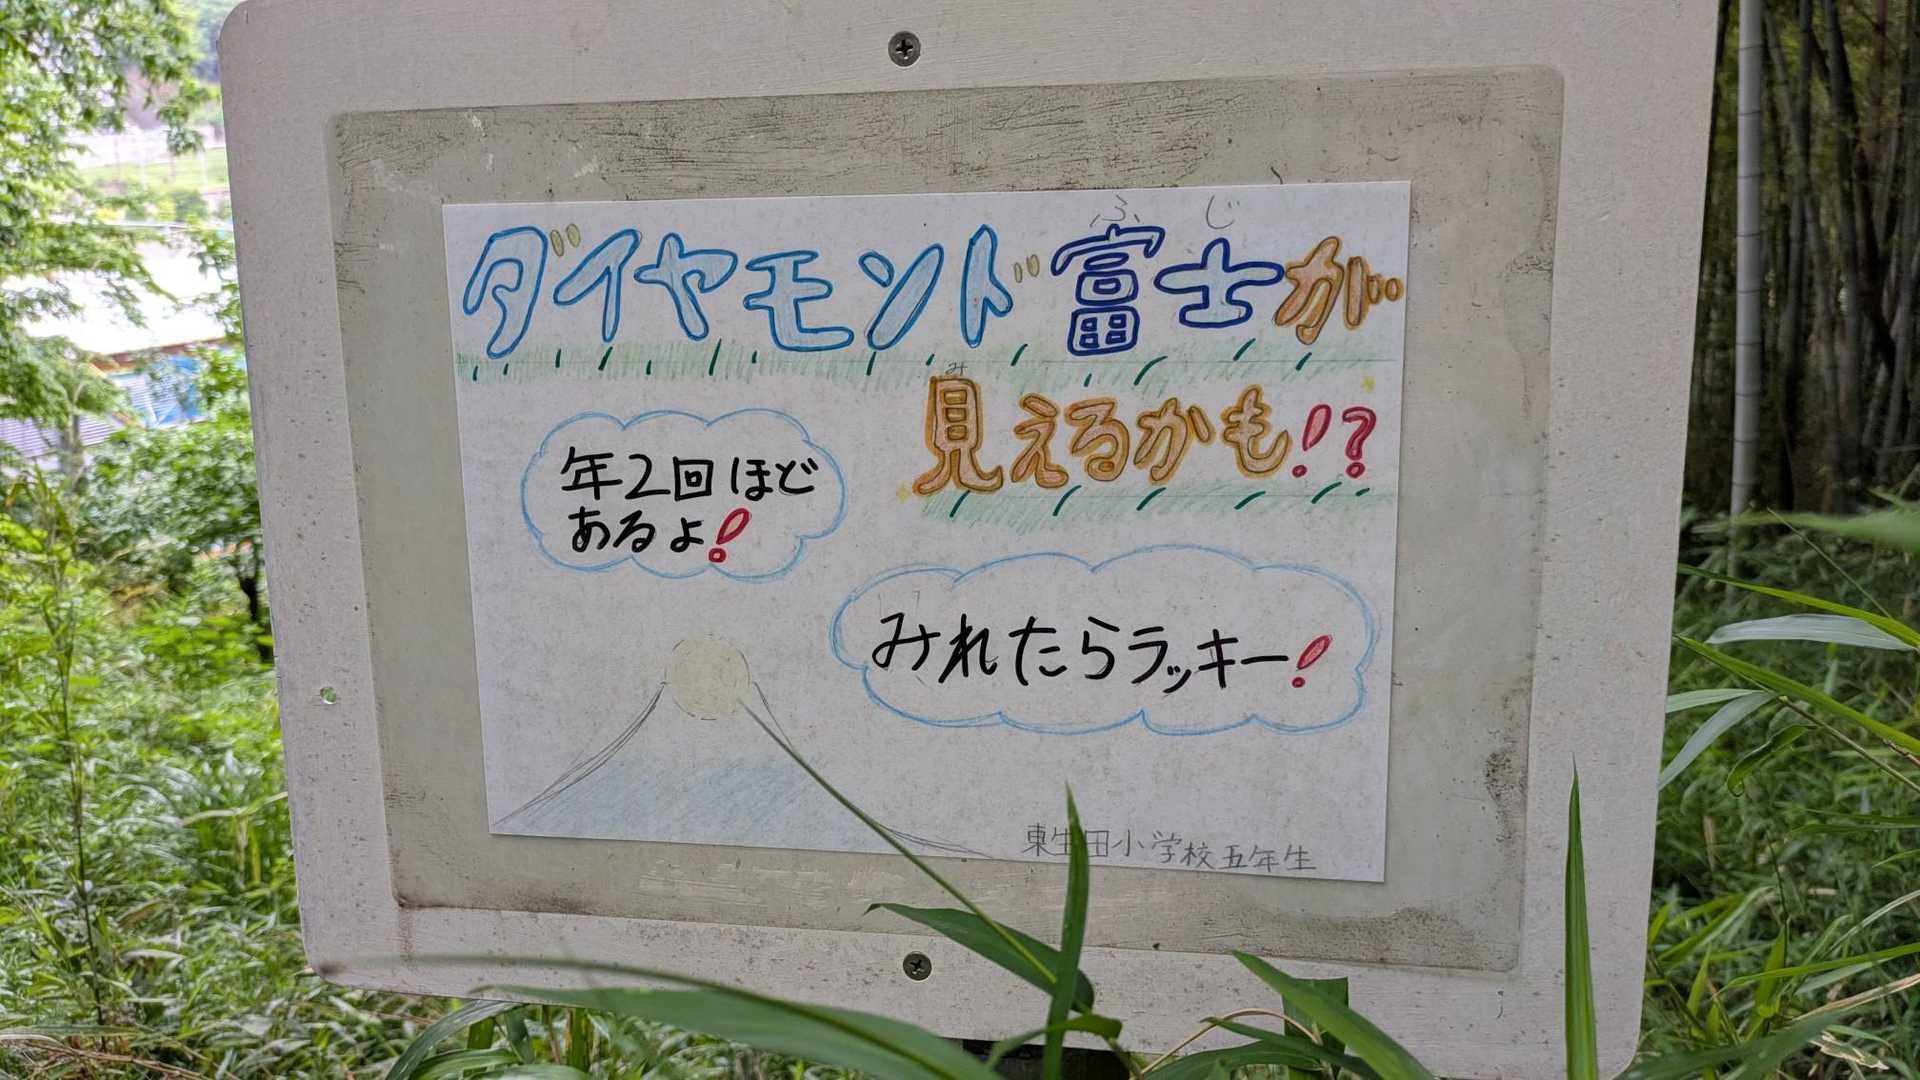 ダイヤモンド富士が
ふじ
見えるかも!?
み
年2回ほど
あるよ!
みれたらラッキー!
東生田小学校五年生